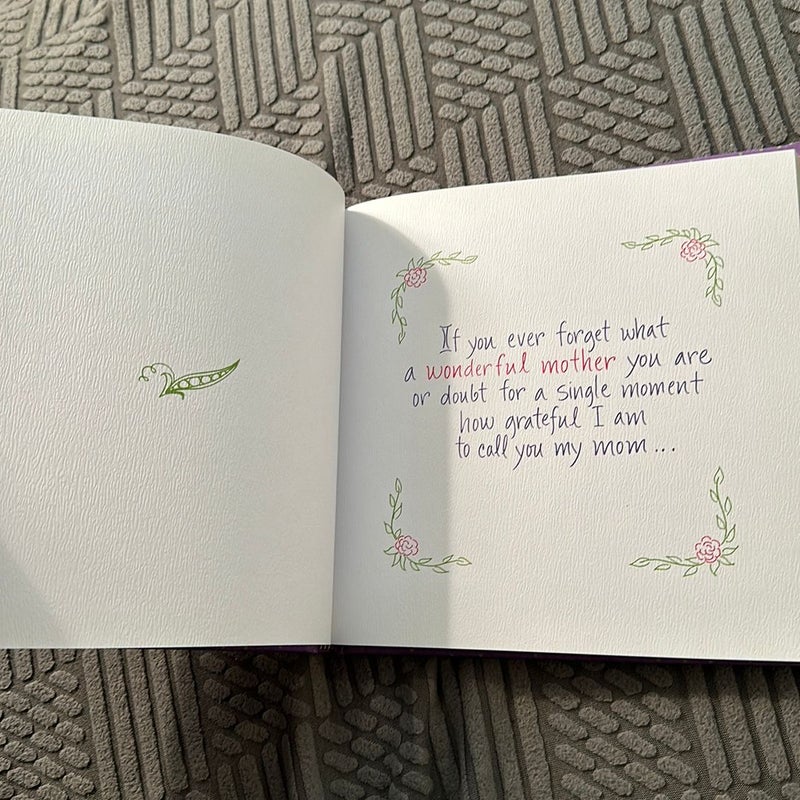 If you ever forget what
a wonderful mother you are
or doubt for a single moment
how grateful I am
to call you my mom...